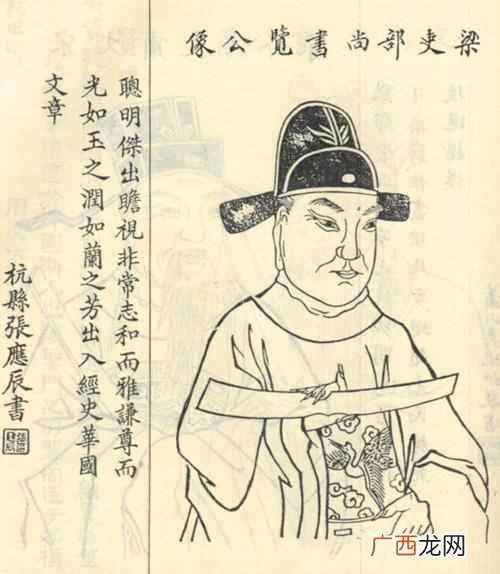 梁吏部尚書覽公像
聰明傑出瞻視非常志和而雅謙尊而
光如玉之潤如蘭之芳出入經史華國
文章
杭縣張應辰書
广西龙网